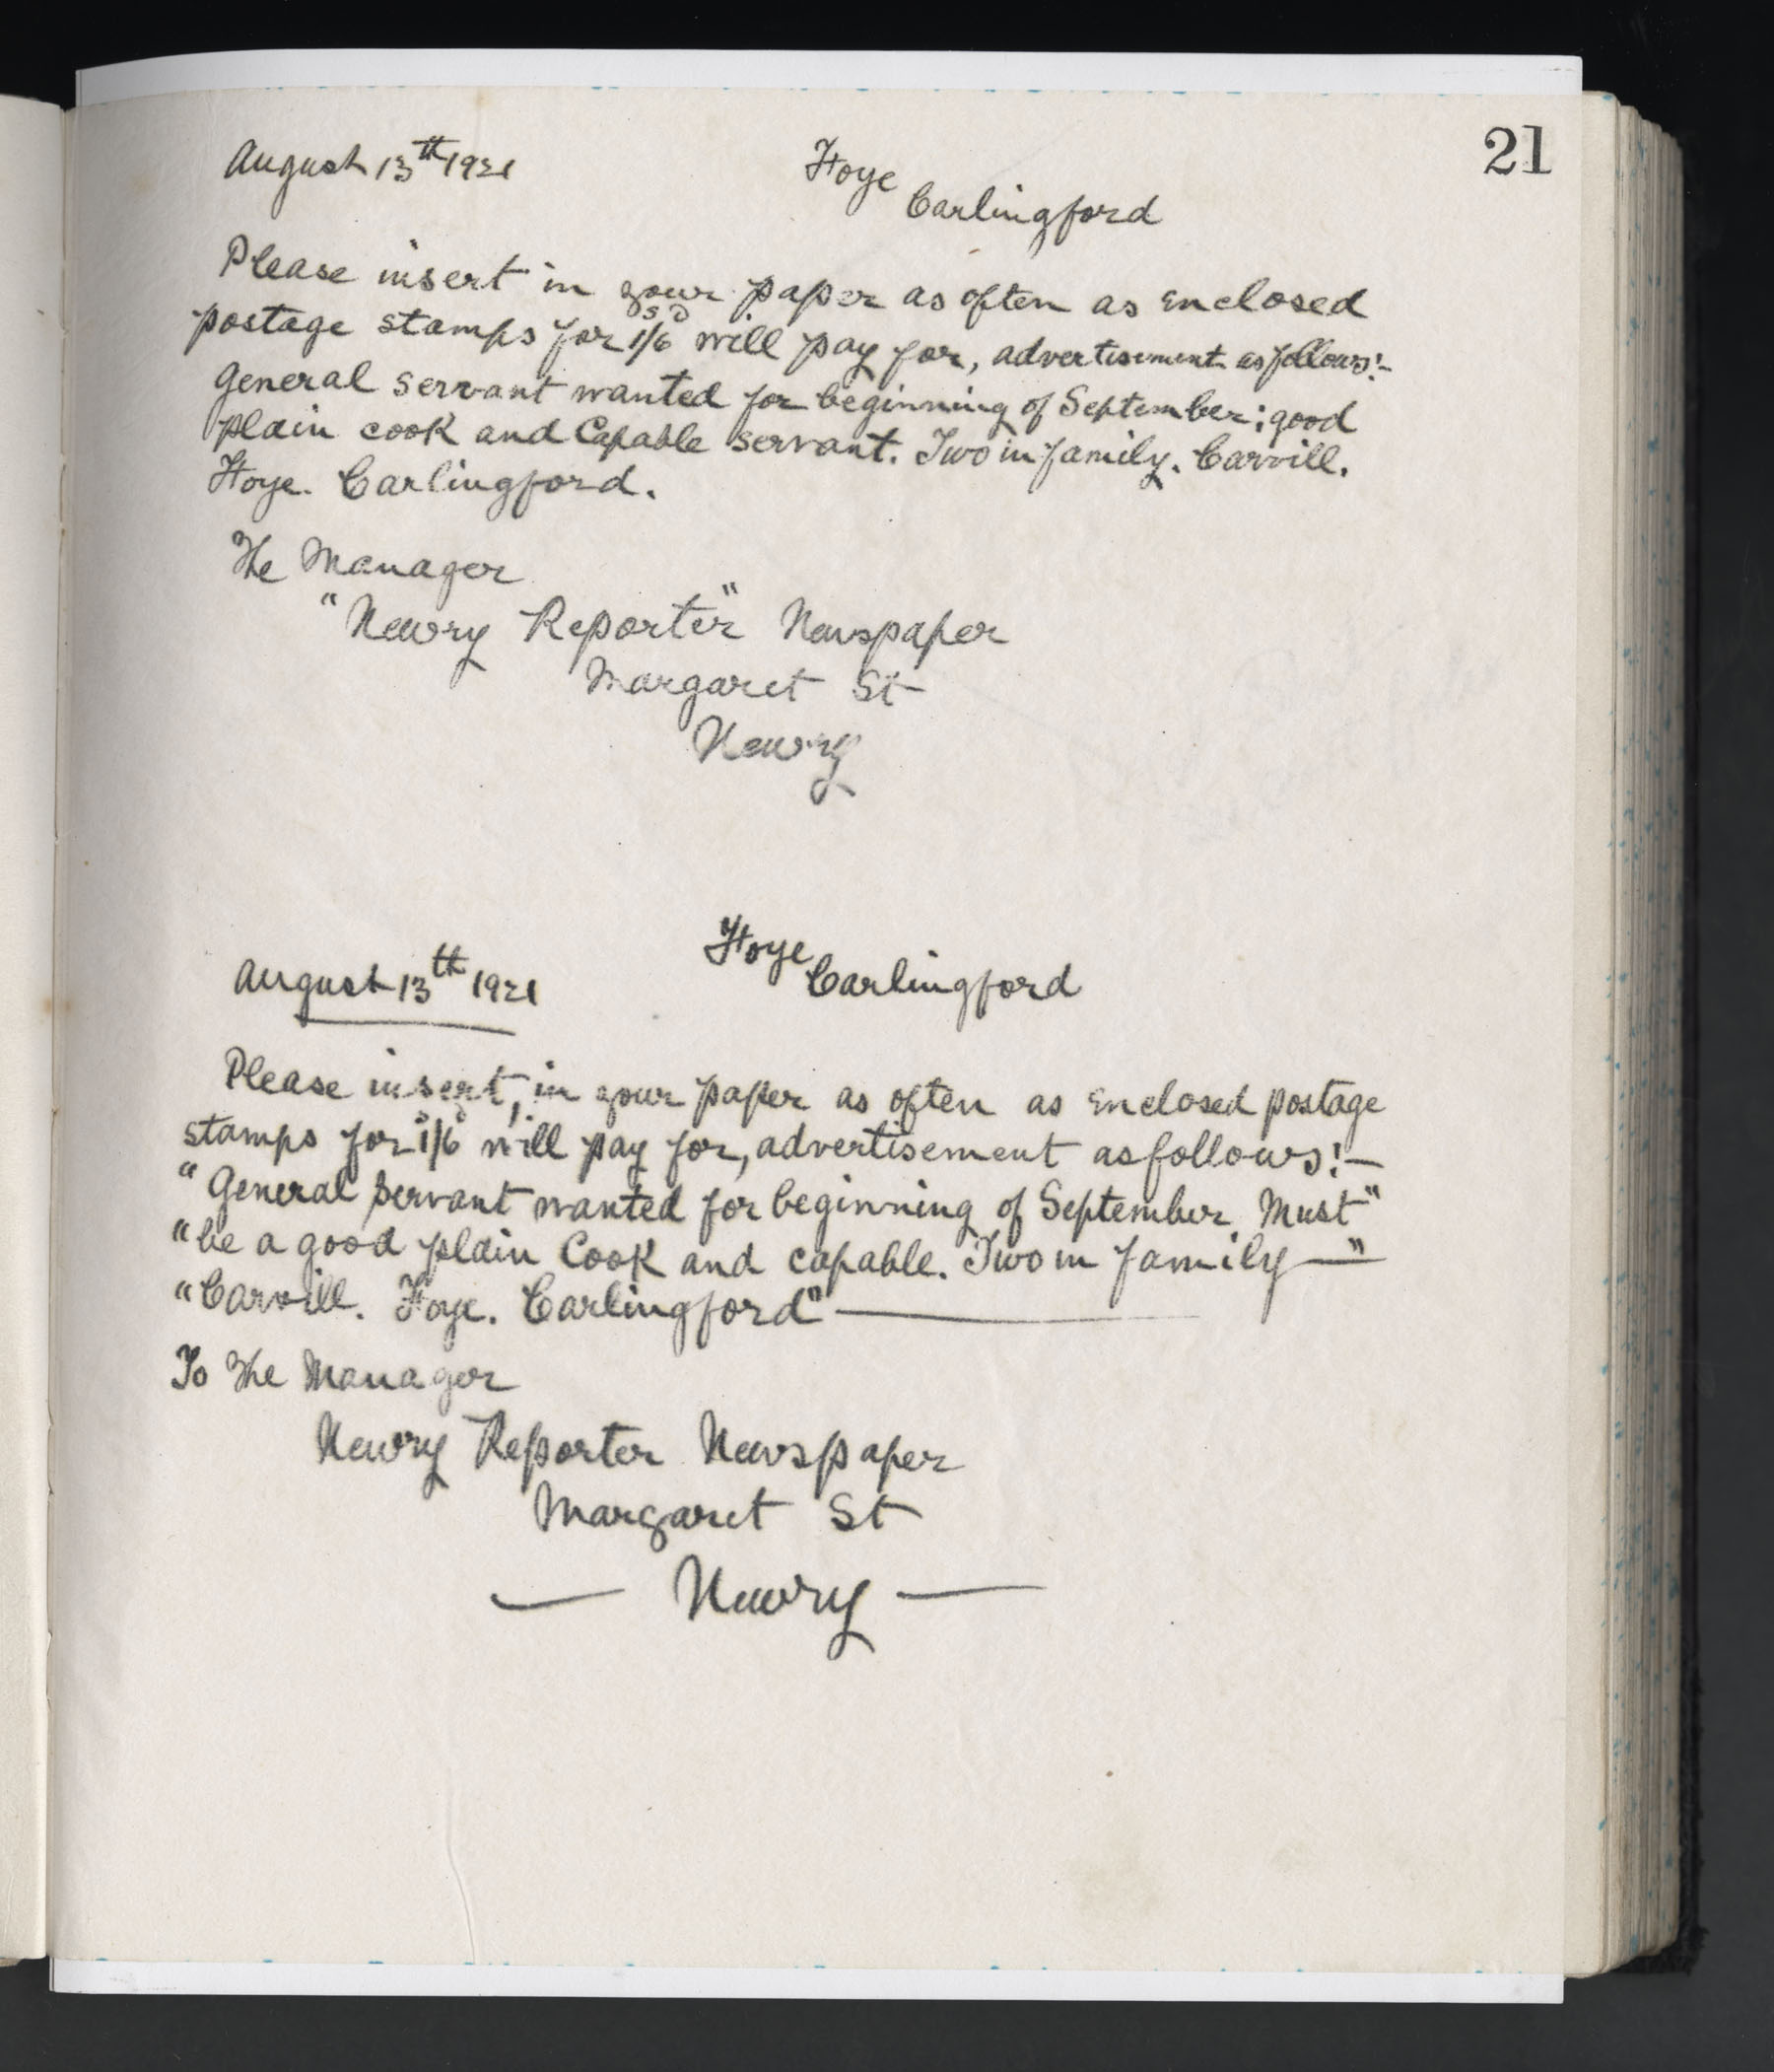 21
August 13th 1921
Foye
Carlingford
Please insert in your paper as often as enclosed
postage stamps for 1s/6d will pay for, advertisement as follows:-
General servant wanted for beginning of September; good
plain cook and Capable servant. Two in family. Carvill.
Foye. Carlingford.
The Manager
"Newry Reporter" Newspaper
Margaret St
Newry
August 13th 1921
Foye
Carlingford
Please insert, in your paper as often as enclosed postage
stamps for 1s/6d will pay for, advertisement as follows:-
"General servant wanted for beginning of September Must"
"be a good plain Cook and capable. Two in family —"
"Carvill. Foye. Carlingford" —
To The Manager
Newry Reporter Newspaper
Margaret St
— Newry —